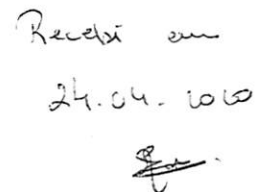 Recebi em
24.04.2020